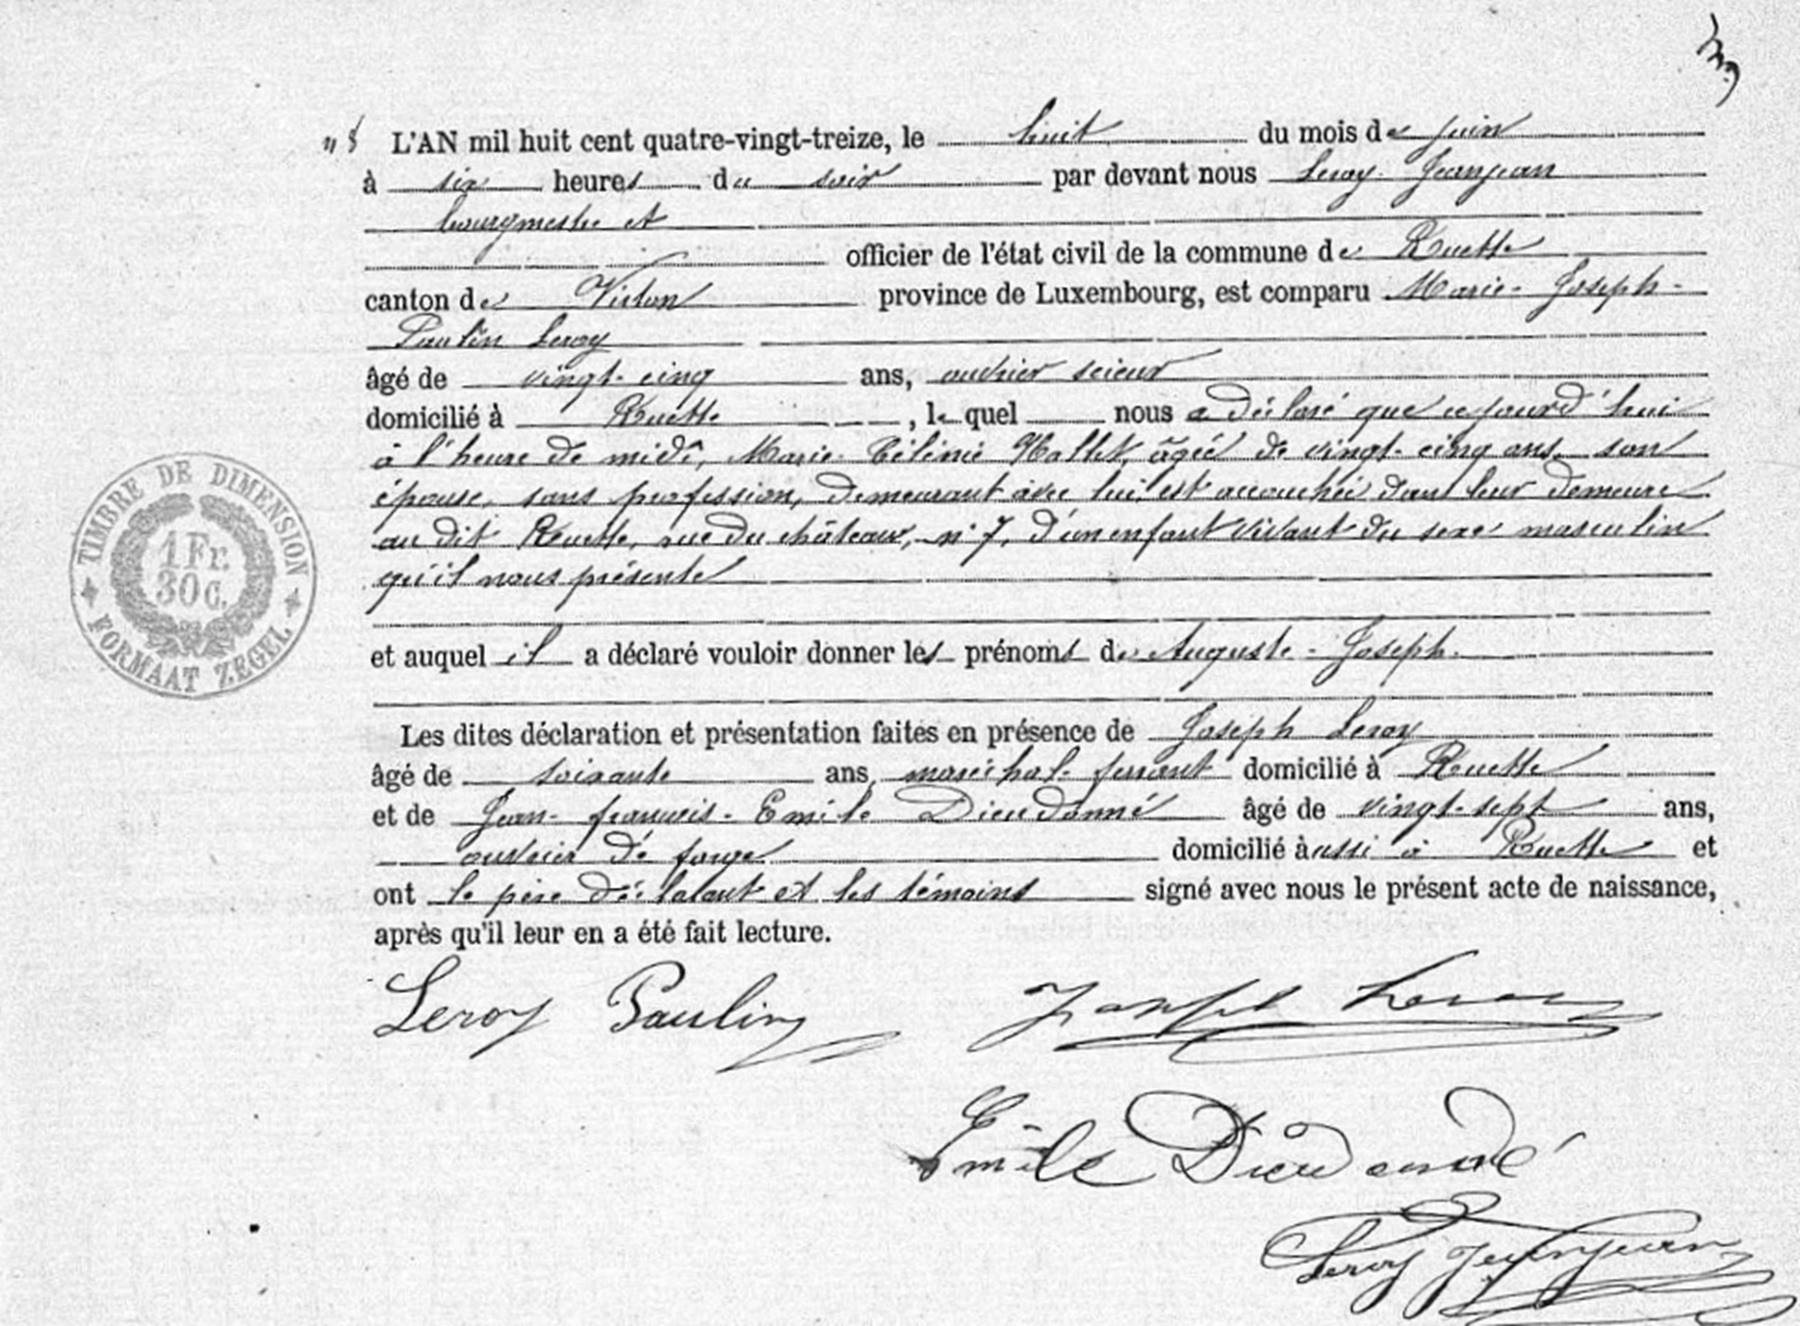 n° 8 L'AN mil huit cent quatre-vingt-treize, le huit du mois de juin
à six heures du soir par devant nous Leroy Jeanjean
bourgmestre et
officier de l'état civil de la commune de Ruette
canton de Virton province de Luxembourg, est comparu Marie-Joseph-
Paulin Leroy
âgé de vingt-cinq ans, ouvrier scieur
domicilié à Ruette, lequel nous a déclaré que cejourd'hui
à l'heure de midi, Marie-Célinie Hallet, âgée de vingt-cinq ans, son
épouse, sans profession, demeurant avec lui, est accouchée dans leur demeure
au dit Ruette, rue du château, n° 7, d'un enfant vivant du sexe masculin
qu'il nous présente
et auquel il a déclaré vouloir donner les prénoms de Auguste-Joseph.
Les dites déclaration et présentation faites en présence de Joseph Leroy
âgé de soixante ans, maréchal-ferrant domicilié à Ruette
et de Jean-françois-Emile Dieudonné âgé de vingt-sept ans,
ouvrier de forge domicilié aussi à Ruette et
ont le père déclarant et les témoins signé avec nous le présent acte de naissance,
après qu'il leur en a été fait lecture.
TIMBRE DE DIMENSION
1 Fr.
30 C.
FORMAAT ZEGEL
Leroy Paulin Joseph Leroy
Emile Dieudonné
Leroy Jeanjean